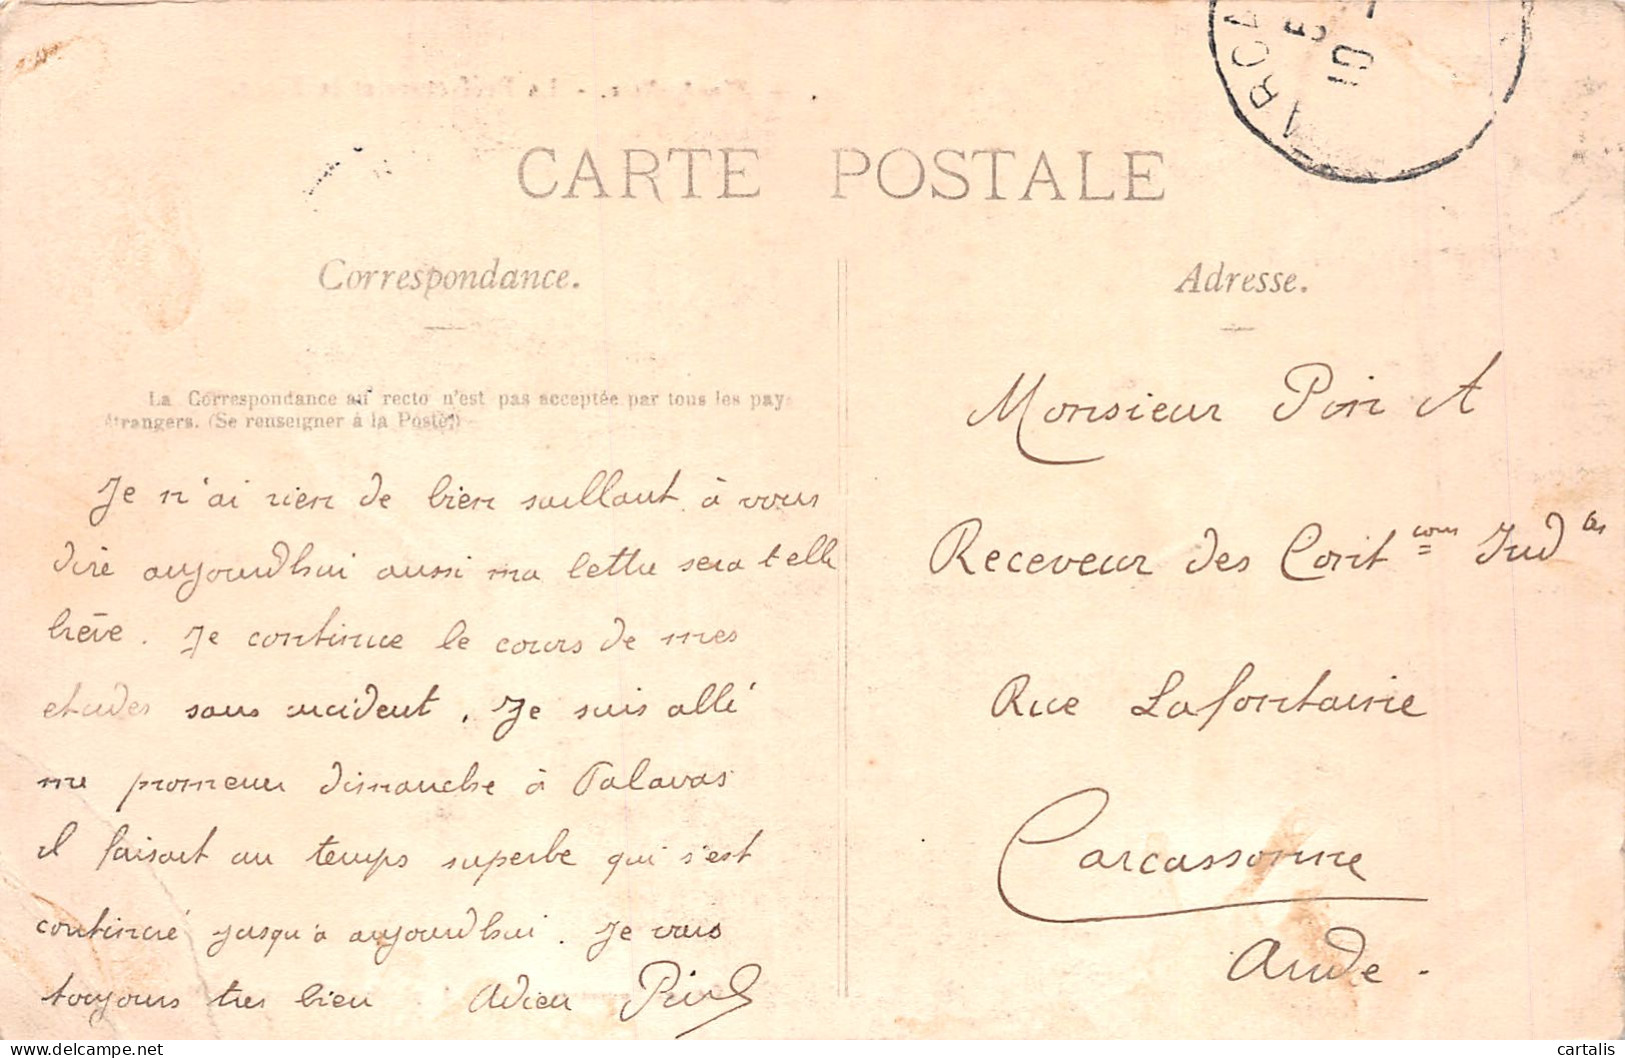 ARCA
5
10 -
CARTE POSTALE
Correspondance.
La Correspondance au recto n'est pas acceptée par tous les pays
étrangers. (Se renseigner à la Poste)
Je n'ai rien de bien saillant à vous
dire aujourd'hui aussi ma lettre sera t elle
brève. Je continue le cours de mes
etudes sans incident. Je suis allé
me promener dimanche à Palavas
il faisait un temps superbe qui s'est
continué jusqu'à aujourd'hui. Je vais
toujours tres bien Adieu
Adresse.
Monsieur Pin A
Receveur des Cont Ind
Rue Lafontaine
Carcassonne
Aude.
cartalis